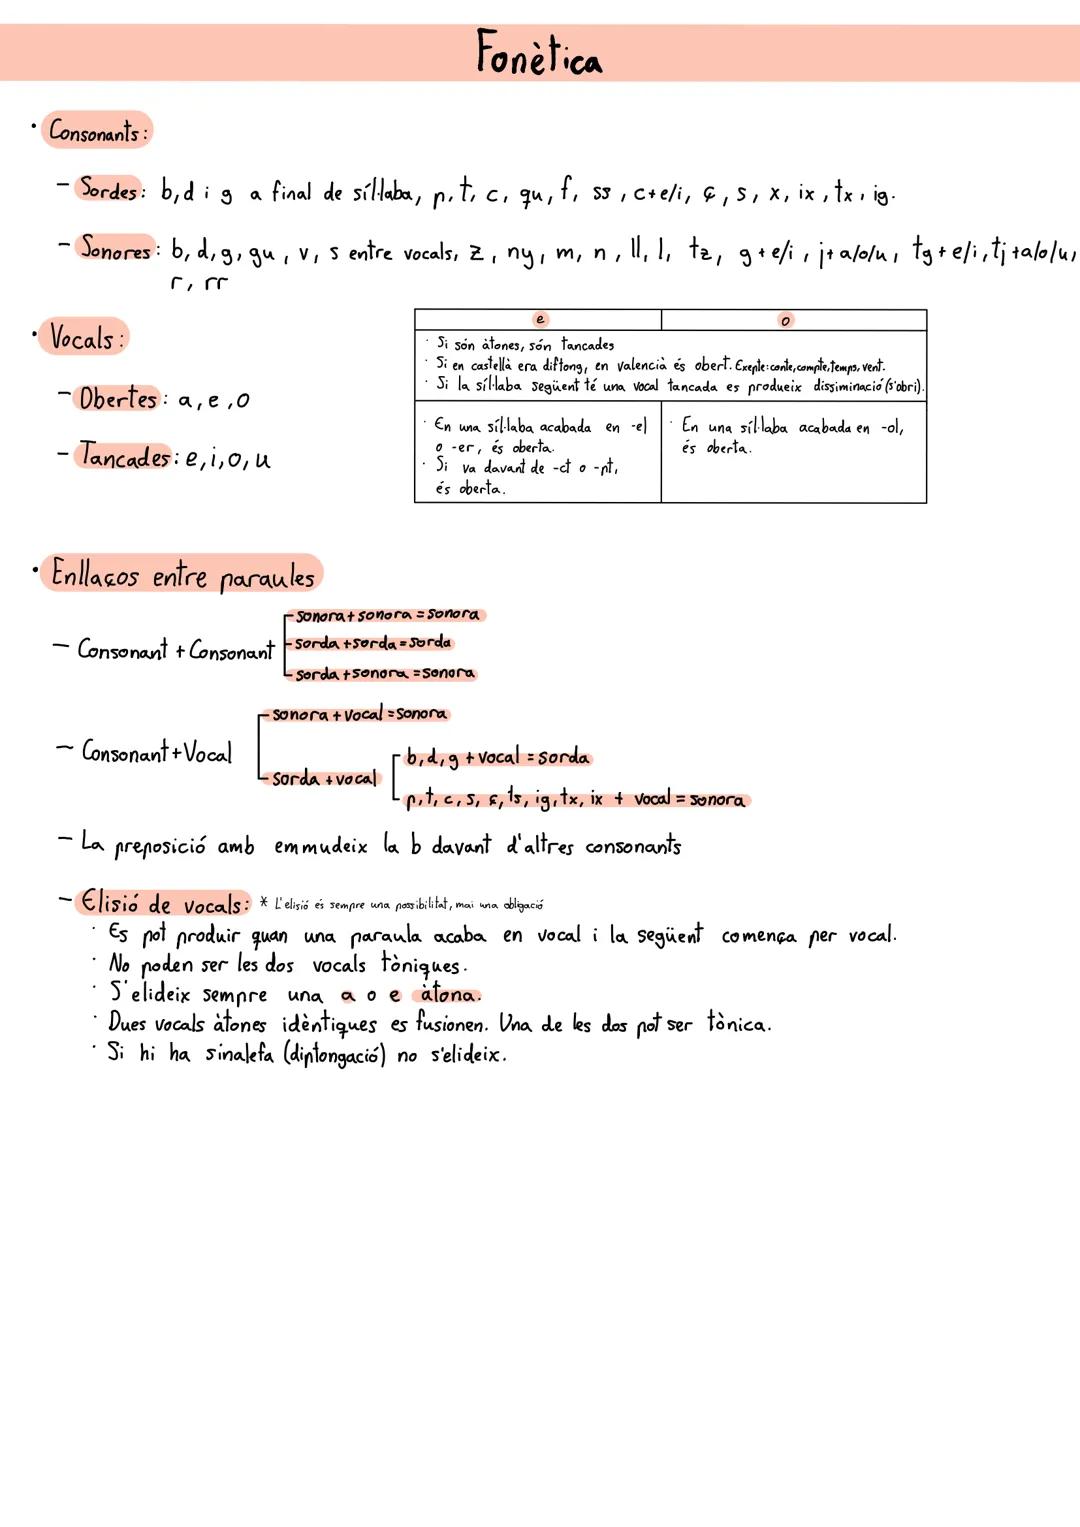 Fonètica
· Consonants:
- Sordes: b,d i g a final de síl·laba, p, t, c, qu, f, ss, c+e/i, ç, s, x, ix, tx, ig.
- Sonores: b, d, g, gu, v, s entre vocals, z, ny, m, n, ll, l, tz, g+e/i, j+a/o/u, tg+e/i, tj+a/o/u,
r, rr
· Vocals:
- Obertes: a, e, o
- Tancades: e, i, o, u
e o
· Si són àtones, són tancades
· Si en castellà era diftong, en valencià és obert. Exeple: conte, compte, temps, vent.
· Si la síl·laba següent té una vocal tancada es produeix dissiminació (s'obri).
· En una síl·laba acabada en -el
o -er, és oberta.
· Si va davant de -ct o -pt,
és oberta.
· En una síl·laba acabada en -ol,
és oberta.
· Enllaços entre paraules
- Consonant + Consonant
sonora + sonora = sonora
sorda + sorda = sorda
sorda + sonora = sonora
- Consonant + Vocal
sonora + vocal = sonora
sorda + vocal
b, d, g + vocal = sorda
p, t, c, s, ç, ts, ig, tx, ix + vocal = sonora
- La preposició amb emmudeix la b davant d'altres consonants
- Elisió de vocals: * L'elisió és sempre una possibilitat, mai una obligació
· Es pot produir quan una paraula acaba en vocal i la següent comença per vocal.
· No poden ser les dos vocals tòniques.
· S'elideix sempre una a o e àtona.
· Dues vocals àtones idèntiques es fusionen. Una de les dos pot ser tònica.
· Si hi ha sinalefa (diptongació) no s'elideix.